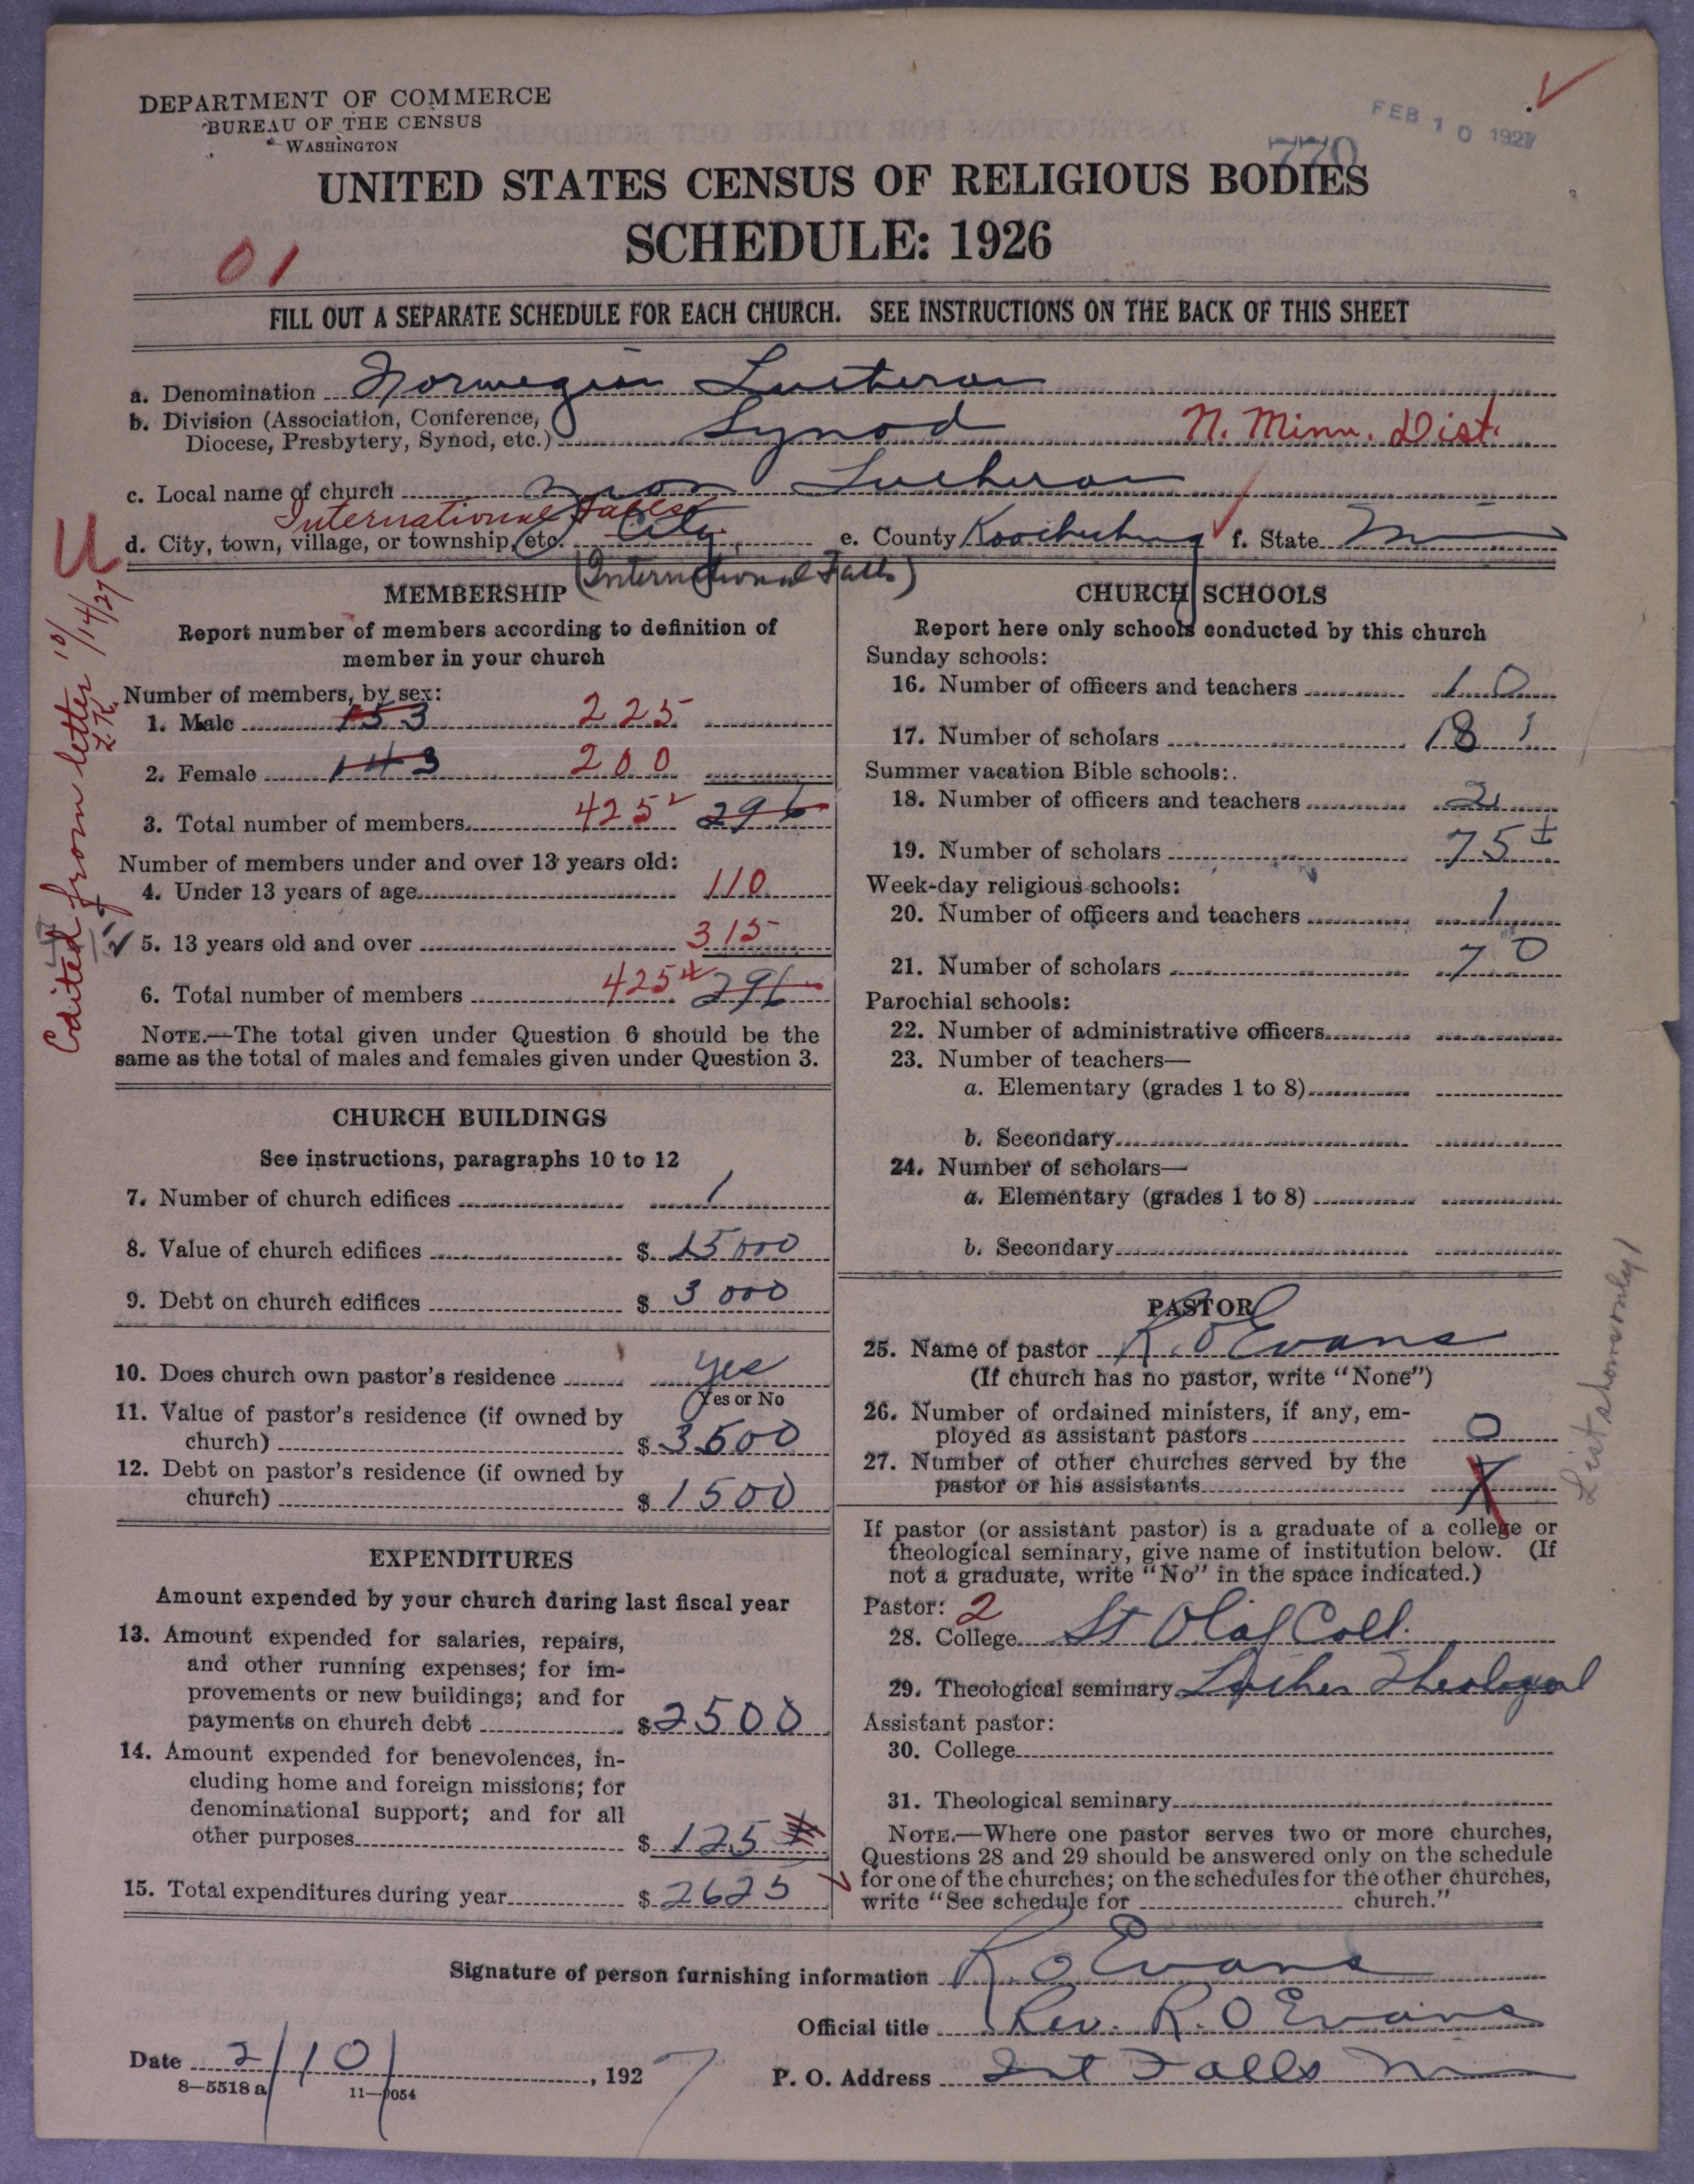 DEPARTMENT OF COMMERCE
BUREAU OF THE CENSUS
WASHINGTON
FEB 10 1927
770
UNITED STATES CENSUS OF RELIGIOUS BODIES
SCHEDULE: 1926
01
FILL OUT A SEPARATE SCHEDULE FOR EACH CHURCH. SEE INSTRUCTIONS ON THE BACK OF THIS SHEET
a. Denomination Norwegian Lutheran
b. Division (Association, Conference,
Diocese, Presbytery, Synod, etc.) Synod N. Minn. Dist.
c. Local name of church Zion Lutheran
International Falls
d. City, town, village, or township, etc. City e. County Koochiching f. State Minn
(International Falls)
U
Edited from letter 10/14/27 L.K.
MEMBERSHIP
Report number of members according to definition of
member in your church
Number of members, by sex:
1. Male 153 225
2. Female 143 200
3. Total number of members 425 296
Number of members under and over 13 years old:
4. Under 13 years of age 110
5. 13 years old and over 315
6. Total number of members 425 296
NOTE.—The total given under Question 6 should be the
same as the total of males and females given under Question 3.
CHURCH BUILDINGS
See instructions, paragraphs 10 to 12
7. Number of church edifices 1
8. Value of church edifices $ 15000
9. Debt on church edifices $ 3000
10. Does church own pastor's residence yes
Yes or No
11. Value of pastor's residence (if owned by
church) $ 3500
12. Debt on pastor's residence (if owned by
church) $ 1500
EXPENDITURES
Amount expended by your church during last fiscal year
13. Amount expended for salaries, repairs,
and other running expenses; for im-
provements or new buildings; and for
payments on church debt $ 2500
14. Amount expended for benevolences, in-
cluding home and foreign missions; for
denominational support; and for all
other purposes $ 125
15. Total expenditures during year $ 2625
CHURCH SCHOOLS
Report here only schools conducted by this church
Sunday schools:
16. Number of officers and teachers 10
17. Number of scholars 181
Summer vacation Bible schools:
18. Number of officers and teachers 2
19. Number of scholars 75±
Week-day religious schools:
20. Number of officers and teachers 1
21. Number of scholars 70
Parochial schools:
22. Number of administrative officers
23. Number of teachers—
a. Elementary (grades 1 to 8)
b. Secondary
24. Number of scholars—
a. Elementary (grades 1 to 8)
b. Secondary
PASTOR
25. Name of pastor R. O Evans
(If church has no pastor, write "None")
26. Number of ordained ministers, if any, em-
ployed as assistant pastors 0
27. Number of other churches served by the
pastor or his assistants
If pastor (or assistant pastor) is a graduate of a college or
theological seminary, give name of institution below. (If
not a graduate, write "No" in the space indicated.)
Pastor: 2
28. College St Olaf Coll.
29. Theological seminary Luther Theological
Assistant pastor:
30. College
31. Theological seminary
NOTE.—Where one pastor serves two or more churches,
Questions 28 and 29 should be answered only on the schedule
for one of the churches; on the schedules for the other churches,
write "See schedule for church."
List shows only 1
Signature of person furnishing information R. O Evans
Official title Rev. R. O Evans
Date 2/10/, 1927
P. O. Address Int Falls Minn
8—5518 a 11—9054